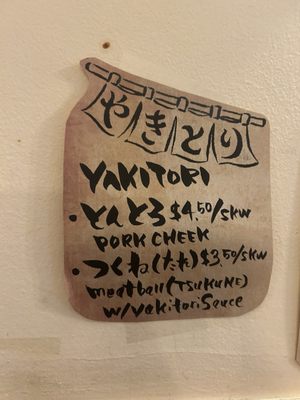 やきとり
YAKITORI
・とんとろ $4.50/SKW
PORK CHEEK
・つくね(たれ)$3.50/SKW
meatball(TSUKUNE)
w/yakitori Sauce